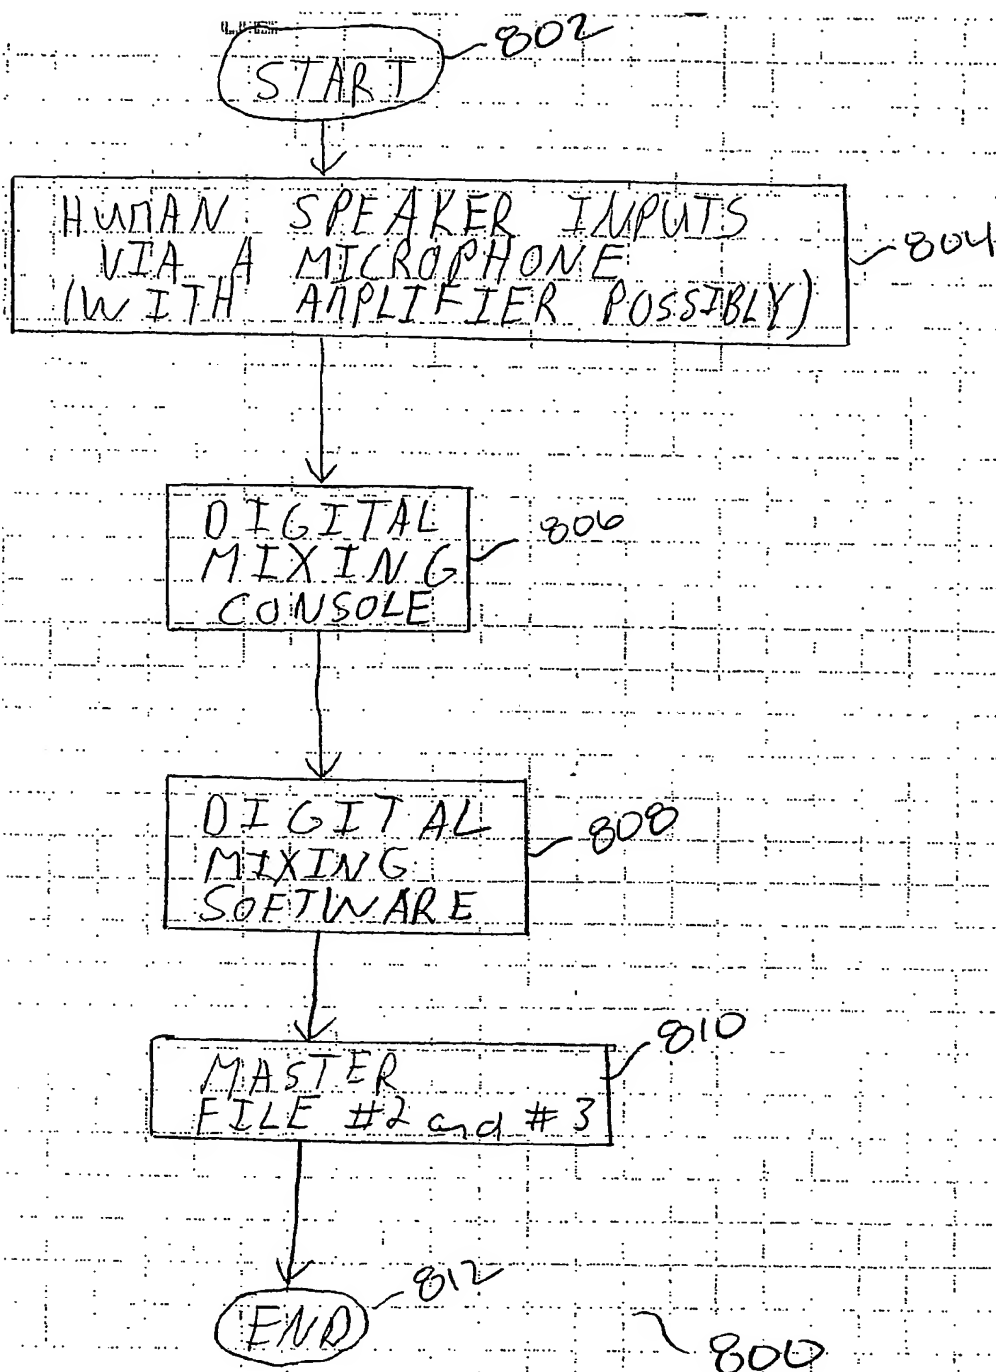 802
START
HUMAN SPEAKER INPUTS
VIA A MICROPHONE
(WITH AMPLIFIER POSSIBLY)
804
DIGITAL
MIXING
CONSOLE
806
DIGITAL
MIXING
SOFTWARE
808
810
MASTER
FILE #2 and #3
812
END
800